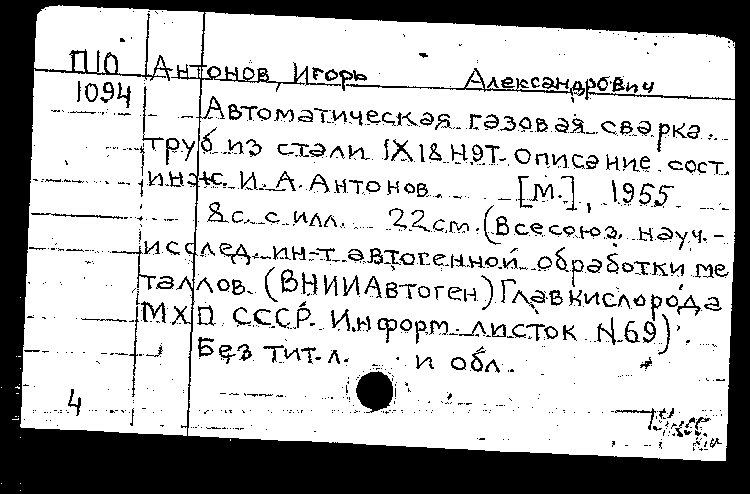 П10 Антонов, Игорь Александрович
1094
Автоматическая газовая сварка
труб из стали 1Х18Н9Т. Описание сост.
инж. И. А. Антонов. [М.], 1955
8с. с илл. 22см. (Всесоюз. науч.-
исслед. ин-т автогенной обработки ме
таллов (ВНИИАвтоген) Главкислорода
МХП СССР. Информ. листок N69).
Без тит. л. и обл.
4